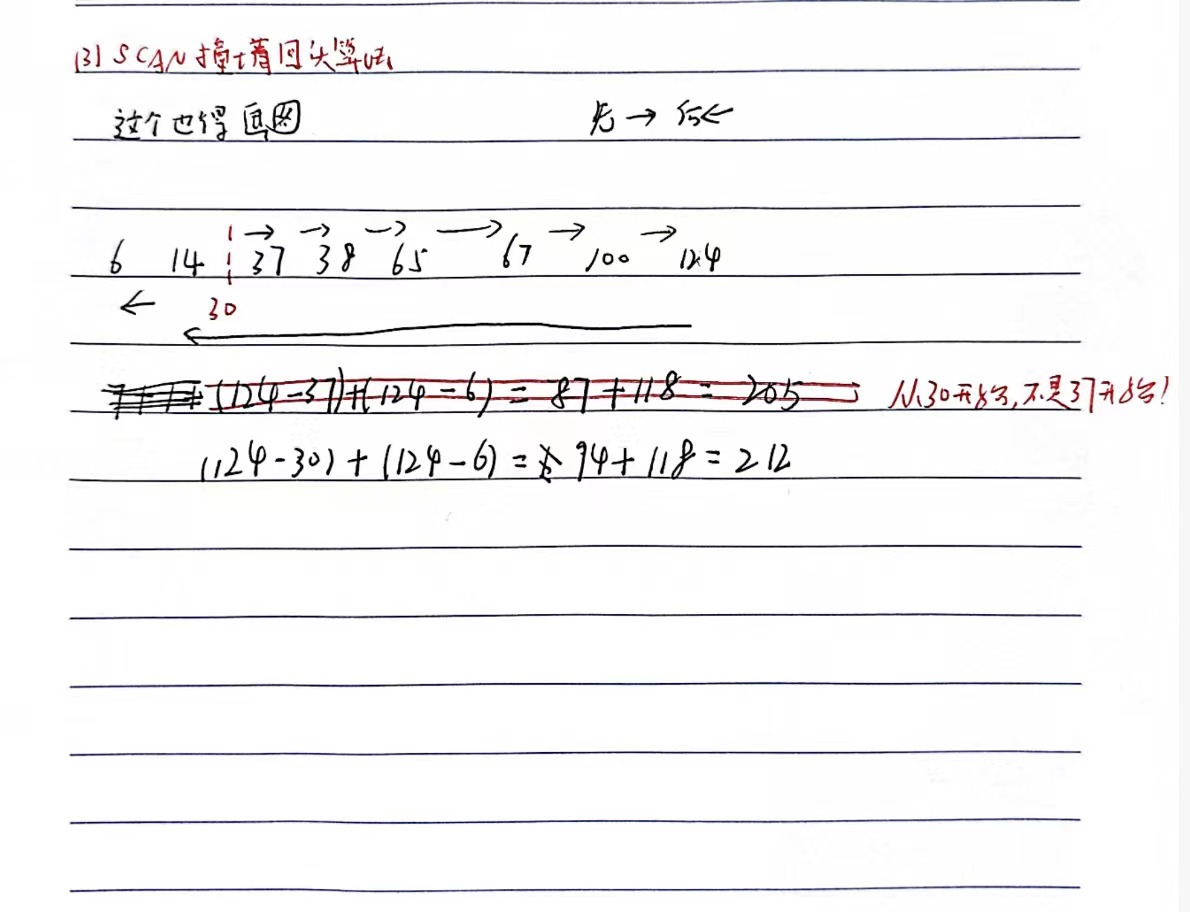 (3) SCAN 撞墙回头算法
这个也得画图 先→ 后←
→ → → → → →
6 14 37 38 65 67 100 124
← 30
←
(124-37)+(124-6) = 87+118 = 205 从30开始,不是37开始!
(124-30)+(124-6) = 94+118 = 212